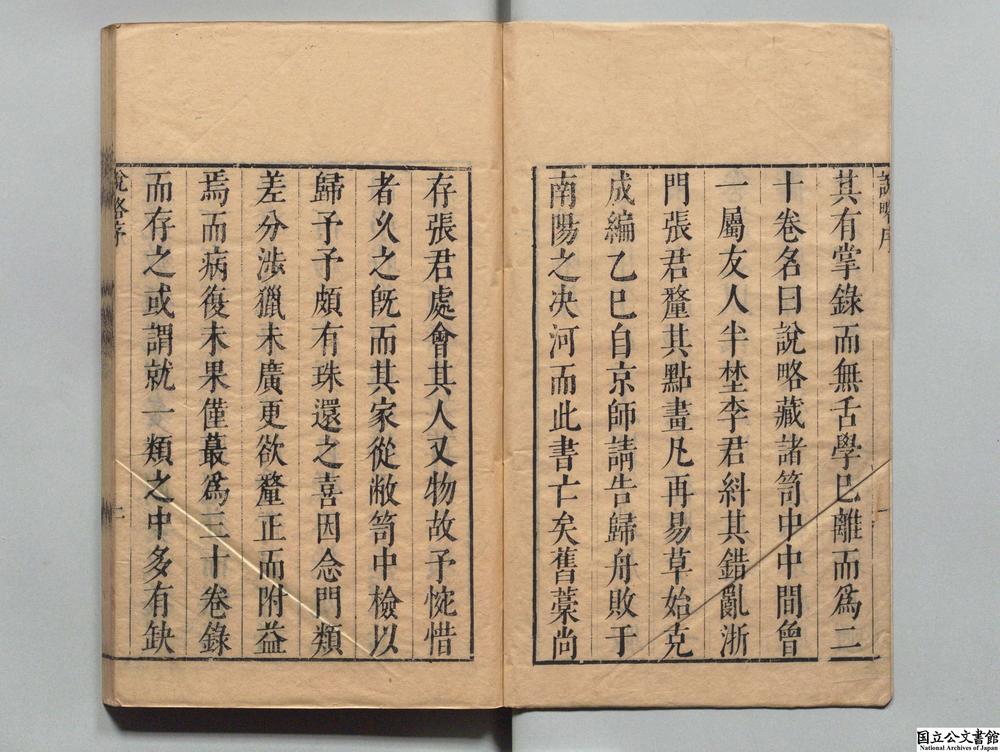 說略序
其有掌錄而無舌學已離而爲二
十卷名曰說略藏諸笥中中間曾
一屬友人半埜李君糾其錯亂浙
門張君釐其點畫凡再易草始克
成編乙巳自京師請告歸舟敗于
南陽之决河而此書亡矣舊藁尚
一
存張君處會其人又物故予惋惜
者久之既而其家從敝笥中檢以
歸予予頗有珠還之喜因念門類
差分涉獵未廣更欲釐正而附益
焉而病復未果僅蕞爲三十卷錄
而存之或謂就一類之中多有缺
說略序
二
国立公文書館
National Archives of Japan